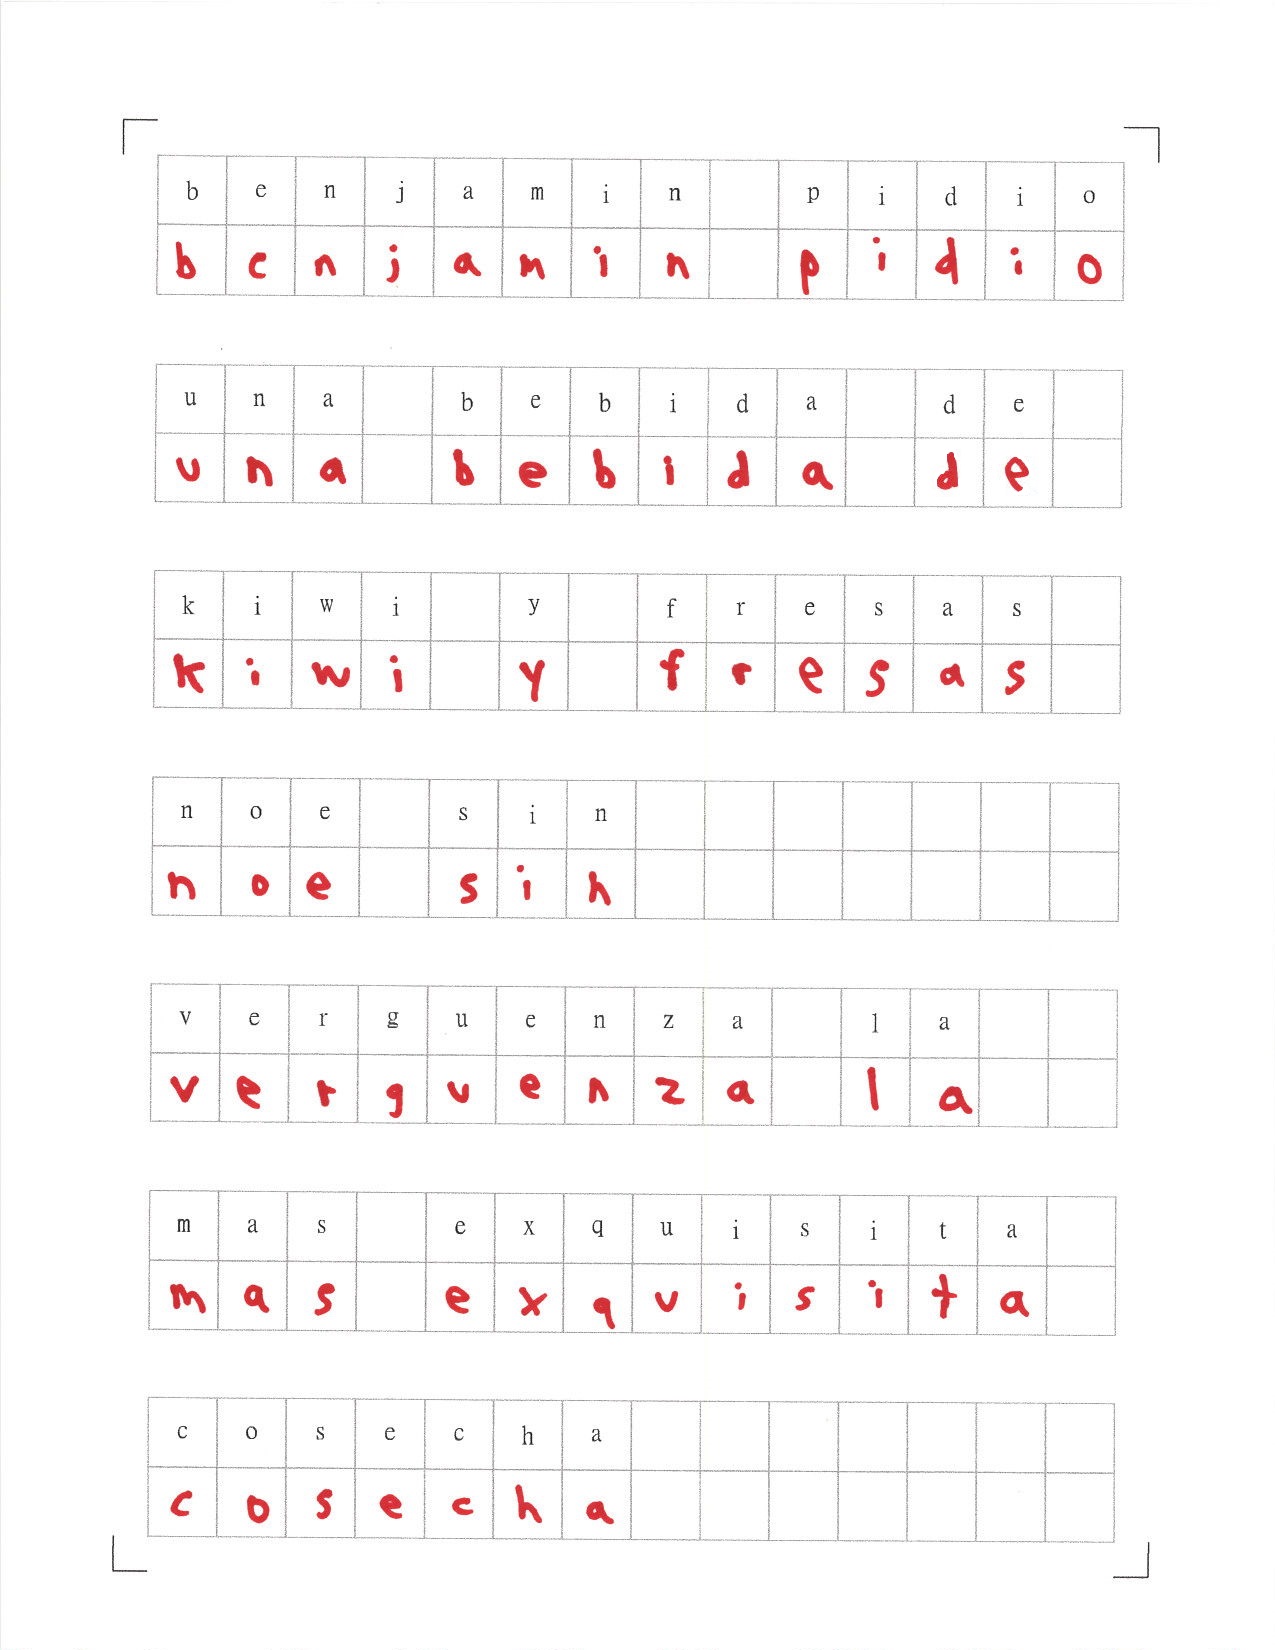 benjamin pidio
bcnjamin pidio
una bebida de
una bebida de
kiwi y fresas
kiwi y fresas
noe sin
noe sih
verguenza la
verguenza la
mas exquisita
mas exquisita
cosecha
cosecha